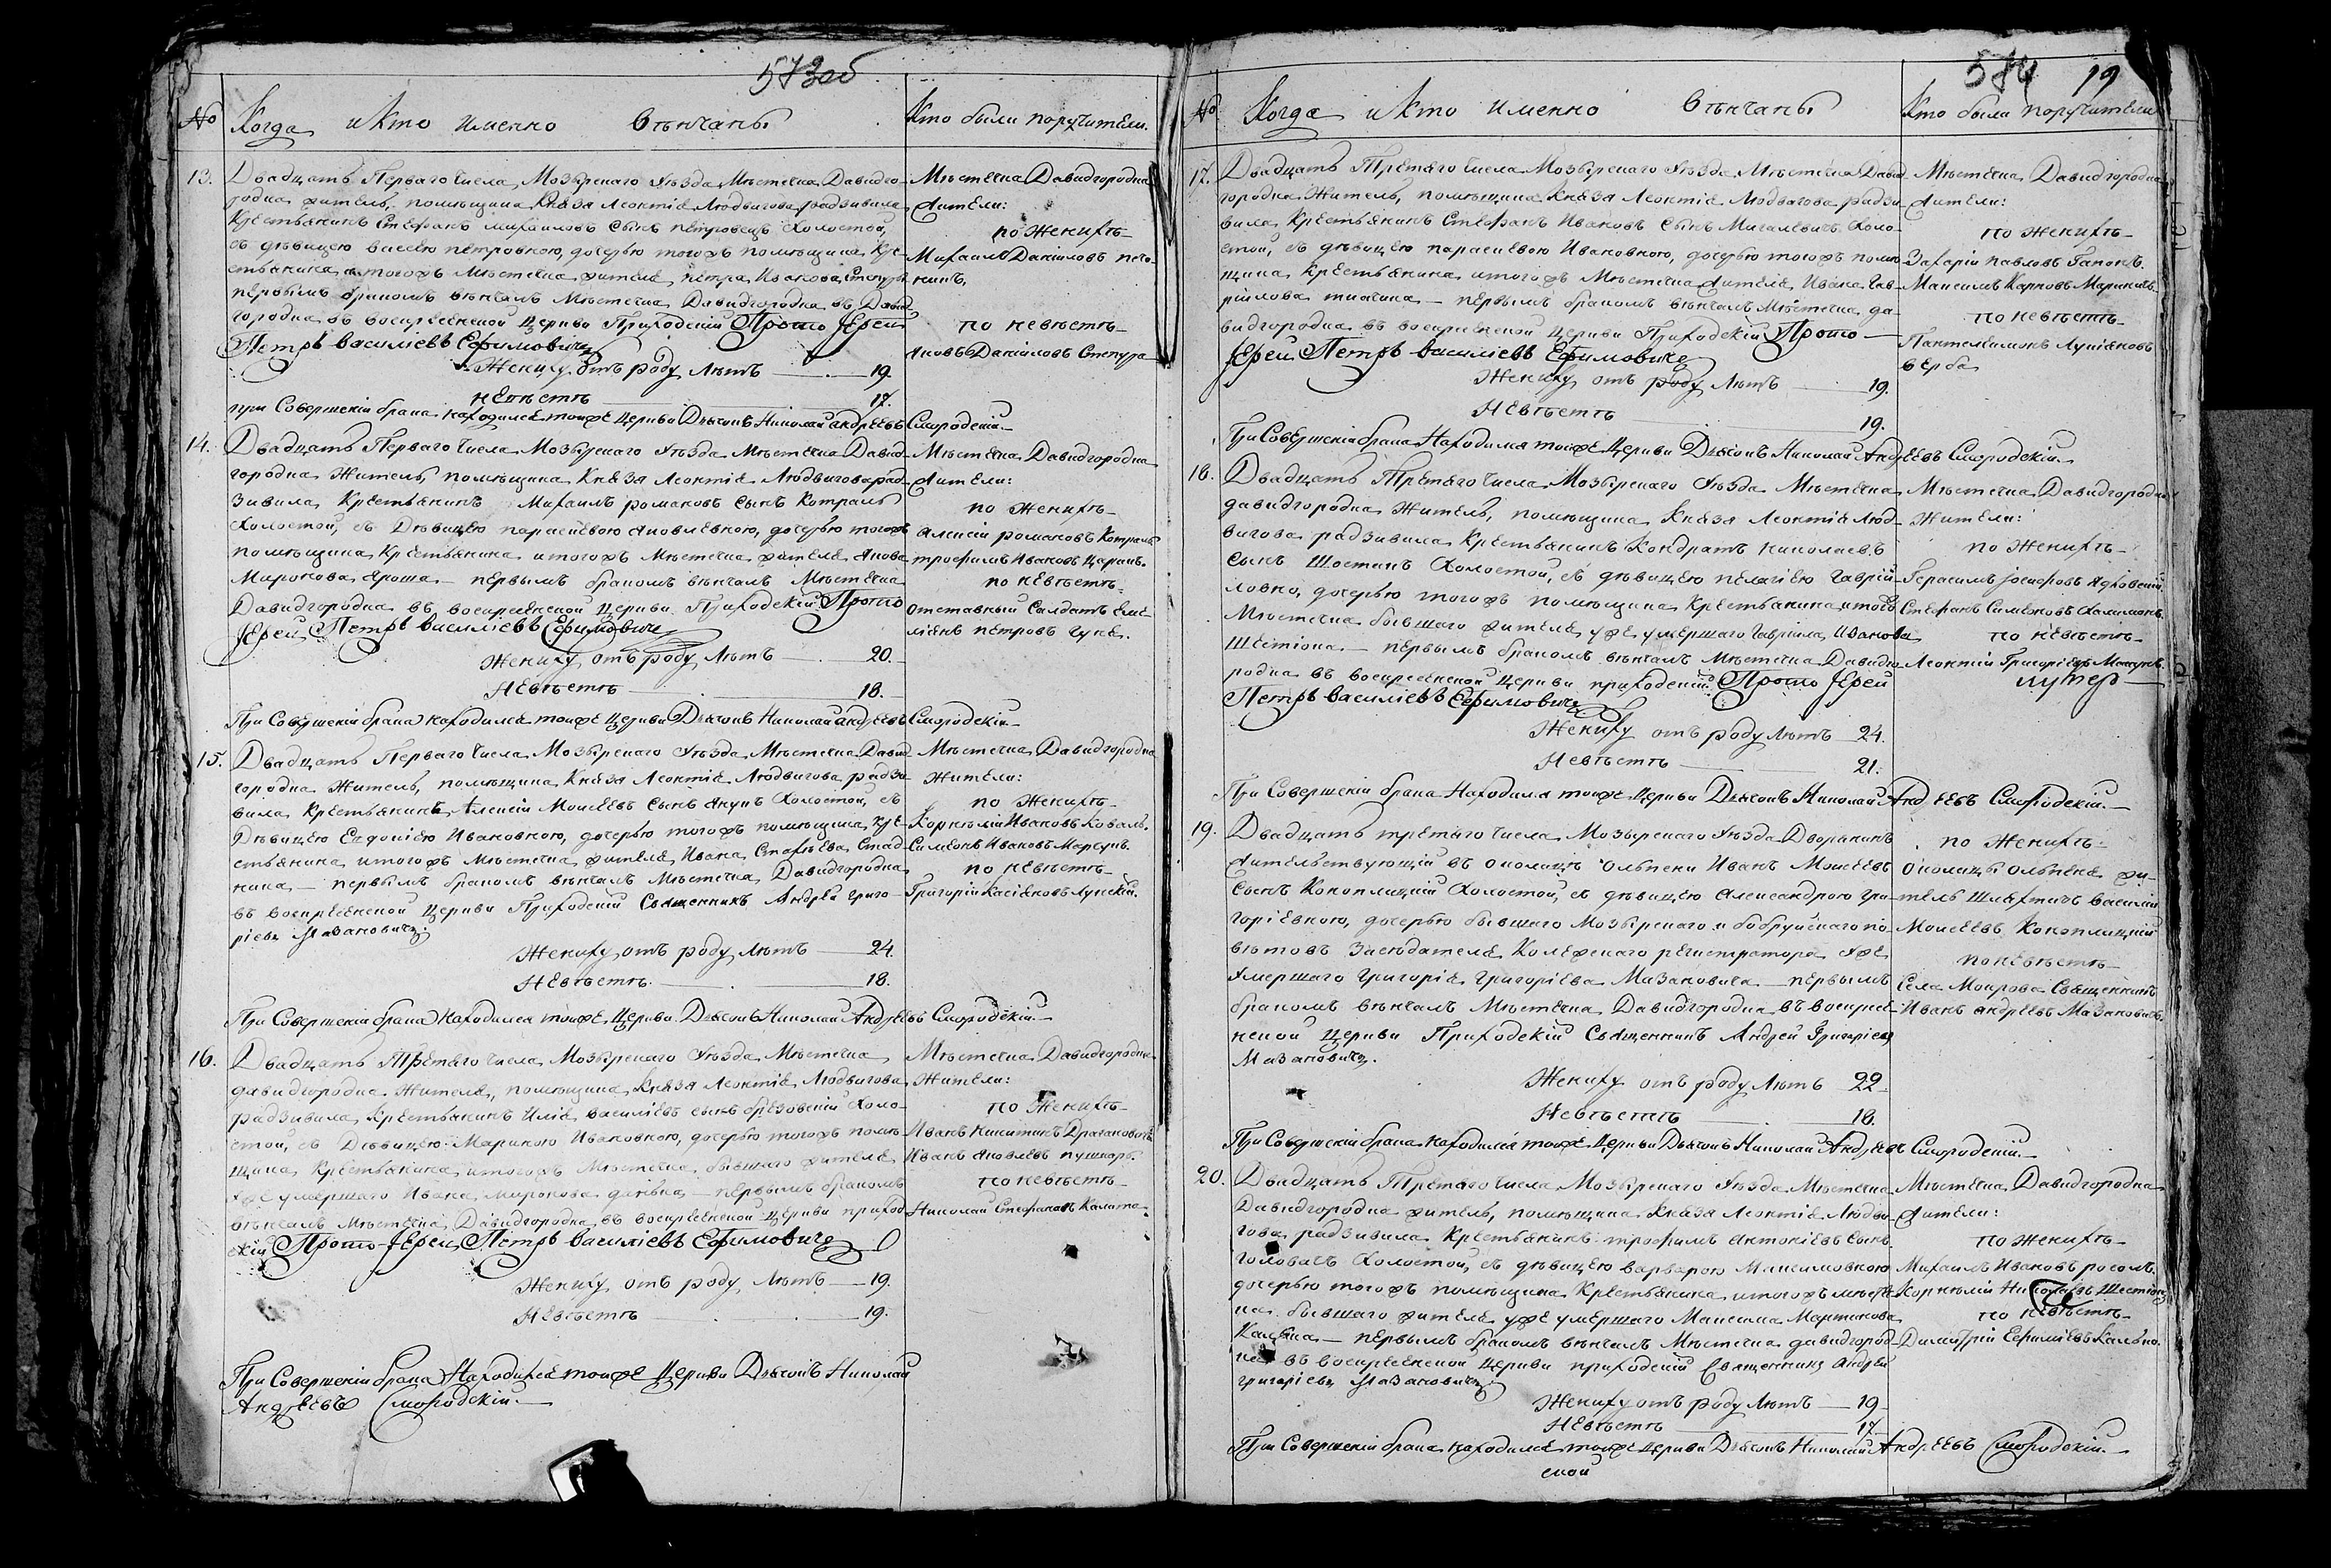 573об
№ Когда и Кто именно Вѣнчаны Кто были поручители.
13. Двадцать Перваго числа Мозырскаго уѣзда Мѣстечка Давидго-
родка житель, помѣщика Князя Леонтія Людвигова радзивила
Крестьянинъ Стефанъ михайловъ сынъ петровецъ Холостой,
съ дѣвицею васссою петровною, дочерью тогожъ помѣщика Кре-
стьянина итогожъ Мѣстечка жителя петра Иванова
первымъ бракомъ вѣнчалъ Мѣстечка Давидгородка въ Давид
городка въ воскресенской Церкви Приходскій Прото Іерей
Петръ Василіевъ Ефимовичъ
Жениху отъ роду Лѣтъ — 19.
Невѣстѣ — 17.
при Совершеніи брака находился тойже Церкви Дьячокъ Николай андреевъ Смородскій.
Мѣстечка Давидгородка
жители:
по Женихѣ
Михаилъ Даніловъ
по невѣстѣ
яковъ Даніловъ
14. Двадцать Перваго числа Мозырскаго уѣзда Мѣстечка Давид-
городка Житель, помѣщика Князя Леонтія Людвигова рад-
зивила Крестьянинъ Михаилъ романовъ сынъ Котрашъ
Холостой, съ Дѣвицею параскевою яковлевною, дочерью тогожъ
помѣщика Крестьянина итогожъ Мѣстечка жителя якова
Миронова яроша — первымъ бракомъ вѣнчалъ Мѣстечка
Давидгородка въ воскресенской Церкви Приходскій Прото
Іерей Петръ Василіевъ Ефимовичъ
Жениху отъ роду Лѣтъ — 20.
Невѣстѣ — 18.
При Совершеніи брака находился тойже Церкви Дьячокъ Николай андреевъ Смородскій.
Мѣстечка Давидгородка
жители:
по Женихѣ
алексій романовъ Котрашъ
трофимъ Ивановъ Царикъ.
по невѣстѣ
отставный Салдатъ Еме-
ліянъ петровъ
15. Двадцать Перваго числа Мозырскаго уѣзда Мѣстечка Давид
городка Житель, помѣщика Князя Леонтія Людвигова радзи-
вила Крестьянинъ Алексій Моисеевъ сынъ Холостой, съ
Дѣвицею Евдокіею Ивановною, дочерью тогожъ помѣщика Кре-
стьянина итогожъ Мѣстечка жителя Ивана Стад-
ника — первымъ бракомъ вѣнчалъ Мѣстечка Давидгородка
въ воскресенской Церкви Приходскій Священникъ Андрей григо-
ріевъ Мазановичъ.
Жениху отъ роду лѣтъ — 24.
Невѣстѣ — 18.
При Совершеніи брака находился тойже Церкви Дьячокъ Николай Андреевъ Смородскій.
Мѣстечка Давидгородка
жители:
по Женихѣ
Корнилій Ивановъ Коваль.
Симеонъ Ивановъ
по невѣстѣ
Григорій Касіяновъ Лунскій.
16. Двадцать Третяго числа Мозырскаго уѣзда Мѣстечка
давидгородка Житель, помѣщика Князя Леонтія Людвигова
радзивила Крестьянинъ Илія василіевъ сынъ брезовскій Холо-
стой, съ Дѣвицею Мариною Ивановною, дочерью тогожъ помѣ-
щика Крестьянина итогожъ Мѣстечка бывшаго жителя
уже умершаго Ивана Миронова — первымъ бракомъ
вѣнчалъ Мѣстечка Давидгородка въ воскресенской Церкви приход-
скій Прото-Іерей Петръ Василіевъ Ефимовичъ
Жениху отъ роду Лѣтъ — 19.
Невѣстѣ — 19.
При Совершеніи брака Находился тойже Церкви Дьячокъ Николай
Андреевъ Смородскій.
Мѣстечка Давидгородка
Жители:
по Женихѣ
Иванъ никитинъ Драгановичъ
Иванъ яковлевъ пушкаръ.
по невѣстѣ
Николай Стефановъ
584 19
№ Когда и Кто именно Вѣнчаны Кто были поручители
17. Двадцать Третяго числа Мозырскаго уѣзда Мѣстечка Давид
городка Житель, помѣщика Князя Леонтія Людвигова радзи-
вила Крестьянинъ Стефанъ Ивановъ сынъ Михалевичъ Холо-
стой, съ дѣвицею параскевою Ивановною, дочерью тогожъ помѣ-
щика Крестьянина итогожъ Мѣстечка жителя Ивана Гав-
ріилова — первымъ бракомъ вѣнчалъ Мѣстечка да-
видгородка въ воскресенской Церкви Приходскій Прото-
Іерей Петръ Василіевъ Ефимовичъ
Жениху отъ роду Лѣтъ — 19.
Невѣстѣ — 19.
При Совершеніи брака Находился тойже Церкви Дьячокъ Николай Андреевъ Смородскій.
Мѣстечка Давидгородка
жители:
по Женихѣ
Захарій павловъ Гапонъ.
Максимъ Карповъ
по невѣстѣ
Пантелимонъ Лукіяновъ
верба
18. Двадцать Третяго числа Мозырскаго уѣзда Мѣстечка
давидгородка Житель, помѣщика Князя Леонтія Люд-
вигова радзивила Крестьянинъ Кондратъ николаевъ
сынъ Шостакъ Холостой, съ дѣвицею пелагіею Гавріи-
ловною, дочерью тогожъ помѣщика Крестьянина итогожъ
Мѣстечка бывшаго жителя уже умершаго Гавріила Иванова
— первымъ бракомъ вѣнчалъ Мѣстечка Давидго-
родка въ воскресенской Церкви приходскій Прото Іерей
Петръ Василіевъ Ефимовичъ
Жениху отъ роду Лѣтъ 24.
Невѣстѣ — 21.
При Совершеніи брака Находился тойже Церкви Дьячокъ Николай Андреевъ Смородскій.
Мѣстечка Давидгородка
Жители:
по Женихѣ
Герасимъ Іосифовъ
Стефанъ Симеоновъ
по невѣстѣ
Леонтій Григоріевъ
19. Двадцать третяго числа Мозырскаго уѣзда Дворянинъ
жительствующій въ околицѣ Ольпени Иванъ Моисеевъ
сынъ Коноплицкій Холостой, съ дѣвицею Александрою Гри-
горіевною, дочерью бывшаго Мозырскаго и бобруйскаго по-
вѣтовъ Засѣдателя Колежскаго регистратора уже
Умершаго Григорія Григоріева Мазановича — первымъ
бракомъ вѣнчалъ Мѣстечка Давидгородка въ воскресен-
ской Церкви Приходскій Священникъ Андрей Григоріевъ
Мазановичъ.
Жениху отъ роду Лѣтъ 22
Невѣстѣ — 18.
При Совершеніи брака находился тойже Церкви Дьячокъ Николай Андреевъ Смородскій.
по Женихѣ
Околицы Ольпеня жи-
тель Шляхтичъ василій
Моисеевъ Коноплицкій
по невѣстѣ
Села Мокрова Священникъ
Иванъ андреевъ Мазановичъ.
20. Двадцать Третяго числа Мозырскаго уѣзда Мѣстечка
Давидгородка житель, помѣщика Князя Леонтія Людви-
гова радзивила Крестьянинъ трофимъ антоніевъ сынъ
Головачъ Холостой, съ дѣвицею варварою Максимовною
дочерью тогожъ помѣщика Крестьянина итогожъ мѣстеч-
ка бывшаго жителя уже умершаго Максима Мартинова
— первымъ бракомъ вѣнчалъ Мѣстечка давидгород-
ка въ воскресенской Церкви приходскій Священникъ андрей
григоріевъ Мазановичъ
Жениху отъ роду Лѣтъ — 19
Невѣстѣ — 17
При Совершеніи брака находился тойже Церкви Дьячокъ Николай Андреевъ Смородскій.
Мѣстечка Давидгородка
жители:
по Женихѣ
Михаилъ Ивановъ росолъ.
Корнилій
по невѣстѣ
Димитрій Ефиміевъ